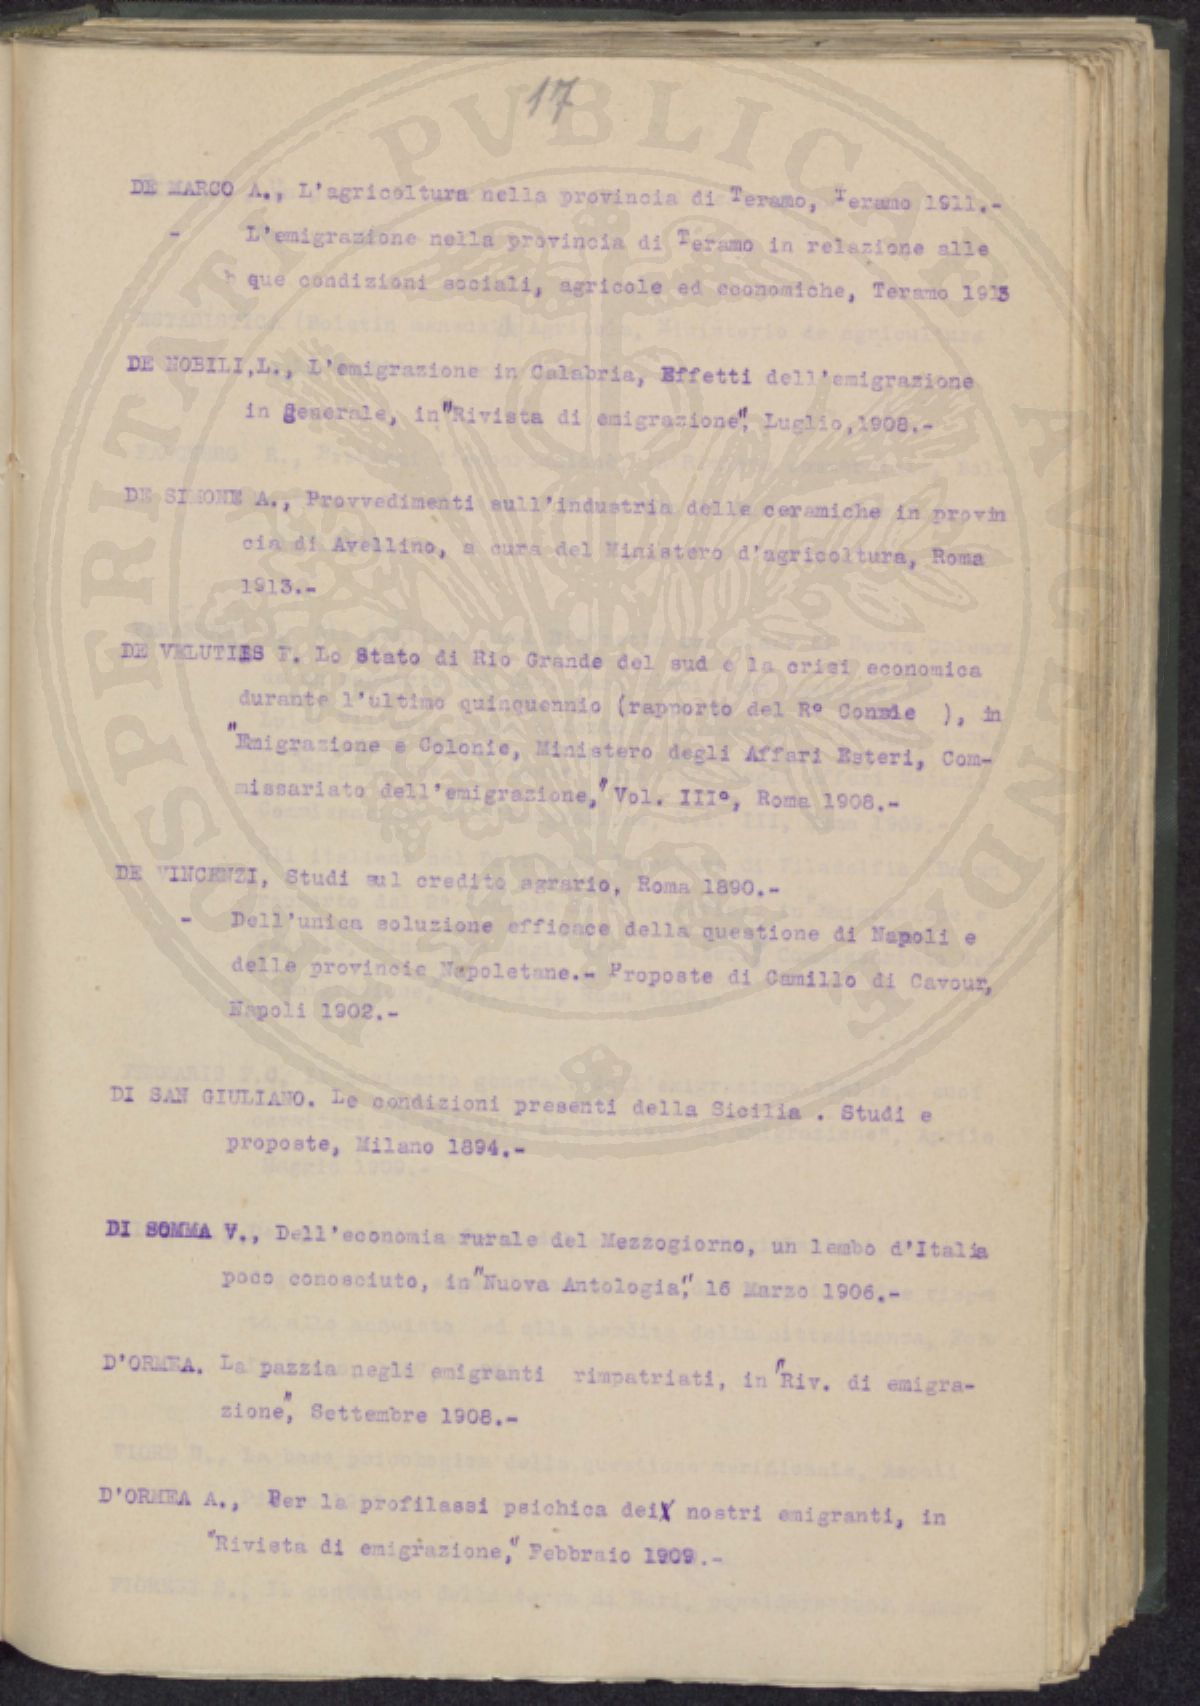 17
DE MARCO A., L'agricoltura nella provincia di Teramo, Teramo 1911.-
- L'emigrazione nella provincia di Teramo in relazione alle
que condizioni sociali, agricole ed economiche, Teramo 1913
DE NOBILI,L., L'emigrazione in Calabria, Effetti dell'emigrazione
in generale, in "Rivista di emigrazione", Luglio,1908.-
DE SIMONE A., Provvedimenti sull'industria delle ceramiche in provin
cia di Avellino, a cura del Ministero d'agricoltura, Roma
1913.-
DE VELUTIIS F. Lo Stato di Rio Grande del sud e la crisi economica
durante l'ultimo quinquennio (rapporto del R° ), in
"Emigrazione e Colonie, Ministero degli Affari Esteri, Com-
missariato dell'emigrazione," Vol. III°, Roma 1908.-
DE VINCENZI, Studi sul credito agrario, Roma 1890.-
- Dell'unica soluzione efficace della questione di Napoli e
delle provincie Napoletane.- Proposte di Camillo di Cavour,
Napoli 1902.-
DI SAN GIULIANO. Le condizioni presenti della Sicilia . Studi e
proposte, Milano 1894.-
DI SOMMA V., Dell'economia rurale del Mezzogiorno, un lembo d'Italia
poco conosciuto, in "Nuova Antologia", 16 Marzo 1906.-
D'ORMEA. La pazzia negli emigranti rimpatriati, in "Riv. di emigra-
zione", Settembre 1908.-
D'ORMEA A., Per la profilassi psichica dei nostri emigranti, in
"Rivista di emigrazione," Febbraio 1909.-